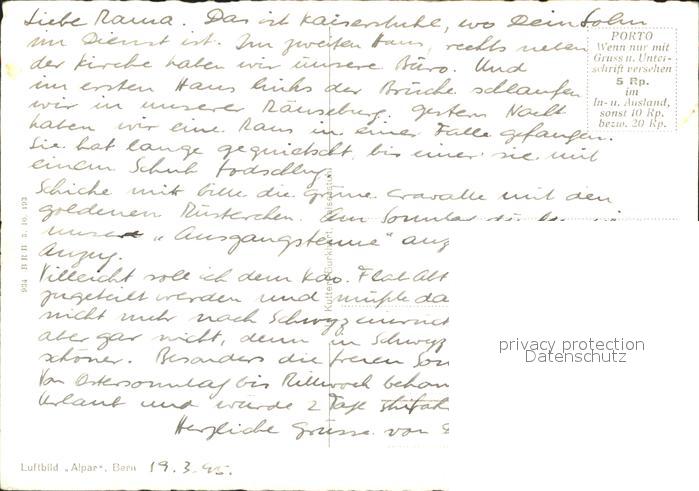 Liebe Mama. Das ist Kaiserstuhl, wo Dein Sohn
im Dienst ist. Im zweiten Haus, rechts neben
der Kirche haben wir unsere Büro. Und
im ersten Haus links der Brücke schlaufen
wir in unserer Mäuseburg. Gestern Nacht
haben wir eine Maus in einer Falle gefangen.
Sie hat lange gequietscht bis einer sie mit
einem Schuh todschlug.
Schicke mir bitte die grüne Cravatte mit den
goldenen Müsterchen. Am Sonntag
unsere „Ausgangstenue"
Anzug.
Villeicht soll ich dem Kdo. Flab Abt
zugeteilt werden und müsste da
nicht mehr nach Schwyz
aber gar nicht, denn in Schwyz
schöner. Besonders die freien
Von Ostersonntag bis Mittwoch
Urlaub und würde 2 Tage
Herzliche Grüsse von
PORTO
Wenn nur mit
Gruss u. Unter-
schrift versehen
5 Rp.
im
In- u. Ausland,
sonst 10 Rp.
bezw. 20 Rp.
934 BRB 3. 10. 193
Kutter-Burkhart, Kaiserstuhl
privacy protection
Datenschutz
Luftbild „Alpar", Bern 19.3.45.